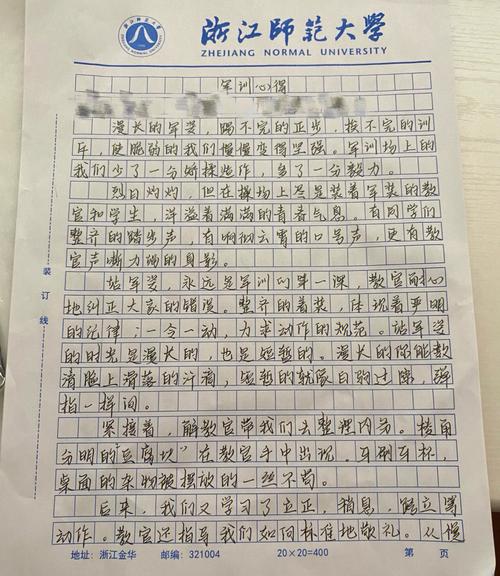 浙江师范大学
ZHEJIANG NORMAL UNIVERSITY
军训心得
漫长的军姿，踢不完的正步，挨不完的训
斥，使脆弱的我们慢慢变得坚强。军训场上的
我们少了一分娇揉造作，多了一分毅力。
烈日灼灼，但在操场上尽是装着军装的教
官和学生，洋溢着满满的青春气息。有同学们
整齐的踏步声，有响彻云霄的口号声，更有教
官声嘶力竭的身影。
站军姿，永远是军训的第一课，教官耐心
地纠正大家的错误。整齐的着装，体现着严明
的纪律；一令一动，力求动作的规范。站军姿
的时光是漫长的，也是短暂的。漫长的你能数
清脸上滑落的汗滴，短暂的就像白驹过隙，弹
指一样间。
紧接着，教官带我们去整理内务。棱角
分明的“豆腐块”在教官手中出现，牙刷牙杯，
桌面的杂物被摆放的一丝不苟。
后来，我们又学习了立正，稍息，跨立等
动作。教官还指导我们如何标准地敬礼。从慢
装订线
地址：浙江金华
邮编：321004
20×20=400
第
页